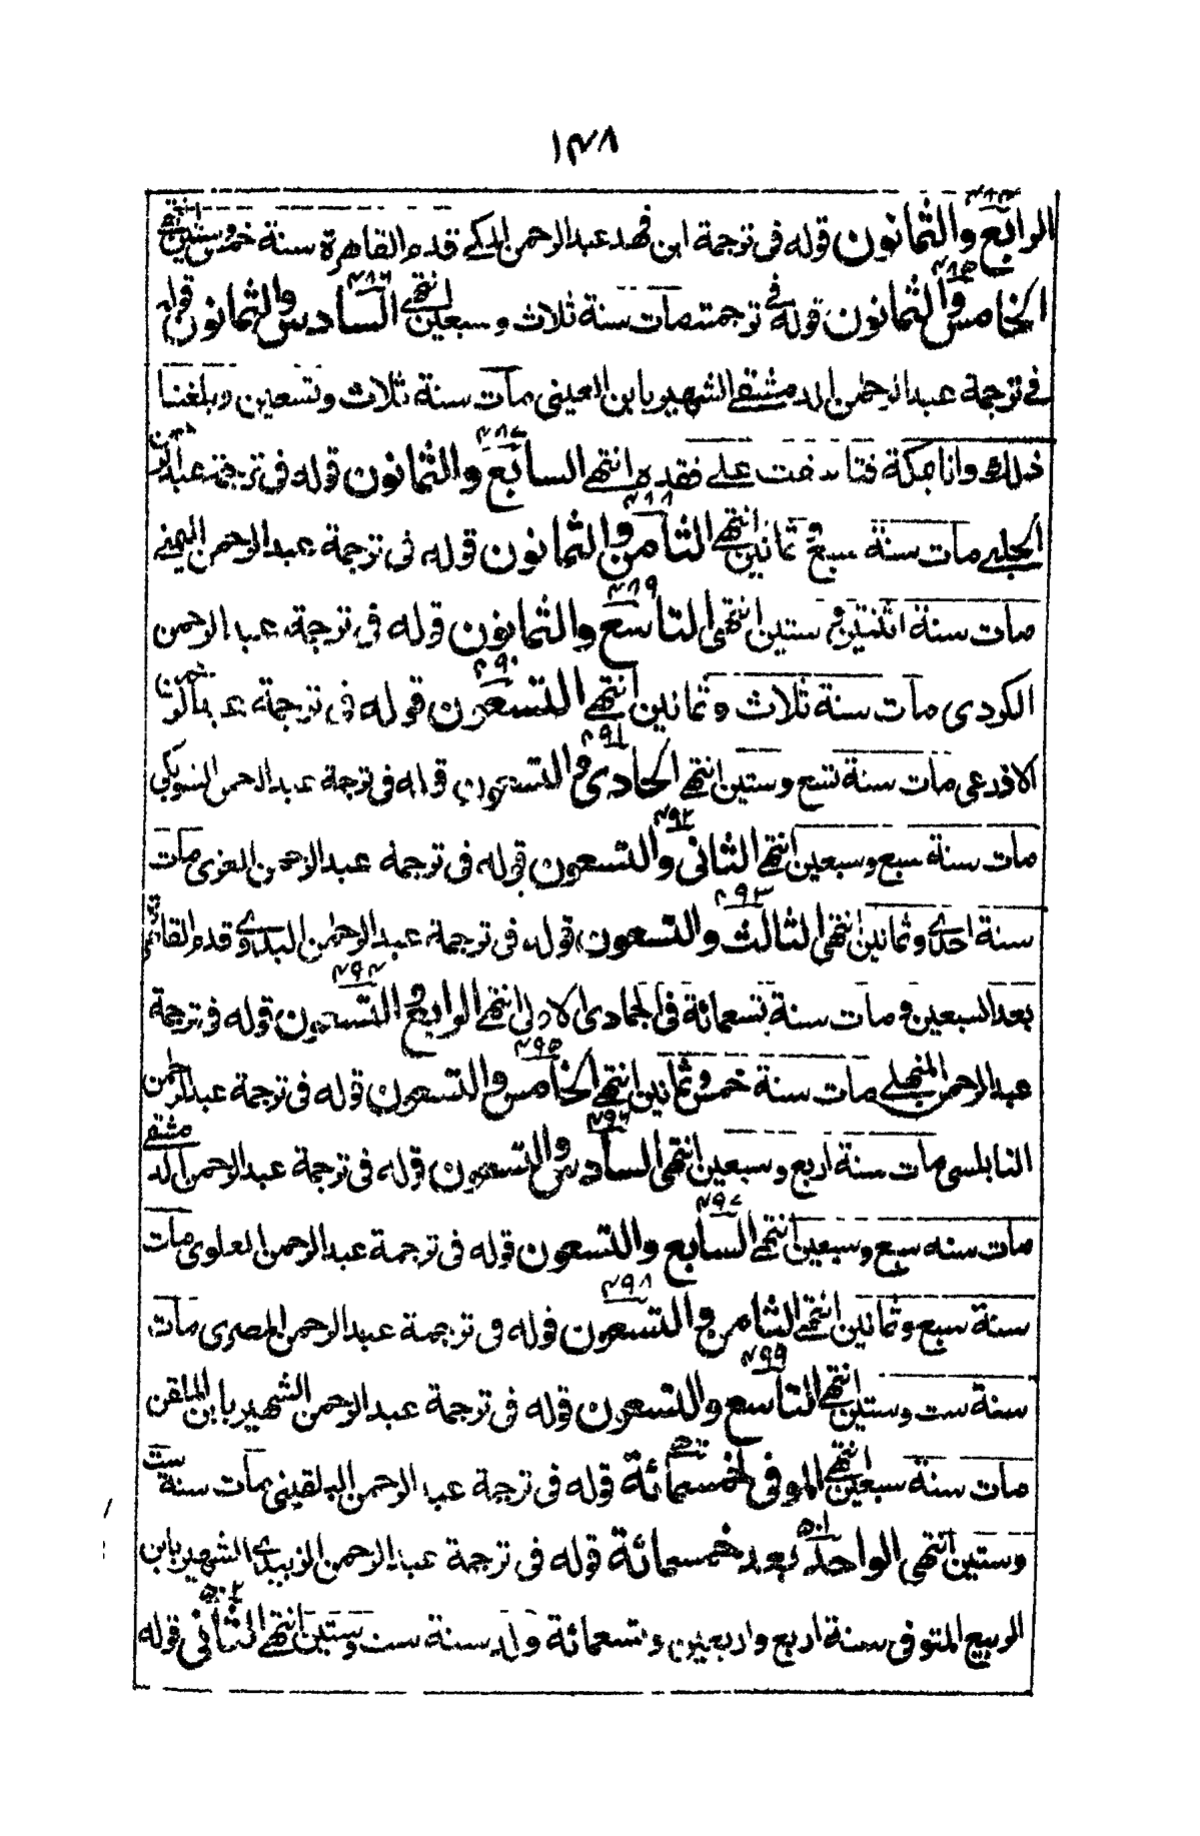 ١٤٨
٤٨٤
الرابع والثمانون قوله فى ترجمة ابن فهد عبد الرحمن المكے قدم القاهرة سنة خمس وستين انتهے
٤٨٥
الخامس والثمانون قوله فے ترجمته مات سنة ثلاث وسبعين انتهے السادس والثمانون قوله
٤٨٦
فے ترجمة عبد الرحمن الدمشقے الشهير بابن العينى مات سنة ثلاث وتسعين وبلغنا
ذلك وانا بمكة فتاسفت علے فقده انتهے السابع والثمانون قوله فى ترجمة عبد الرحمن
٤٨٧
الجبلے مات سنة سبع وثمانين انتهے الثامن والثمانون قوله فى ترجمة عبد الرحمن اليمنے
٤٨٨
مات سنة اثنتين وستين انتهى التاسع والثمانون قوله فى ترجمة عبد الرحمن
٤٨٩
الكردى مات سنة ثلاث وثمانين انتهے التسعون قوله فى ترجمة عبد الرحمن
٤٩٠
الاذرعى مات سنة تسع وستين انتهے الحادى والتسعون قوله فى ترجمة عبد الرحمن
٤٩١
مات سنة سبع وسبعين انتهے الثانى والتسعون قوله فى ترجمة عبد الرحمن الغزى مات
٤٩٢
سنة احدى وثمانين انتهى الثالث والتسعون قوله فى ترجمة عبد الرحمن وقدم القاهرة
٤٩٣
بعد السبعين ومات سنة تسعمائة فى الجمادى الاولى انتهے الرابع والتسعون قوله فى ترجمة
٤٩٤
عبد الرحمن المنهلے مات سنة خمس وثمانين انتهے الخامس والتسعون قوله فى ترجمة عبد الرحمن
٤٩٥
النابلسى مات سنة اربع وسبعين انتهى السادس والتسعون قوله فى ترجمة عبد الرحمن الدمشقے
٤٩٦
مات سنه سبع وسبعين انتهے السابع والتسعون قوله فى ترجمة عبد الرحمن العلوى مات
٤٩٧
سنة سبع وثمانين انتهے الثامن والتسعون قوله فى ترجمة عبد الرحمن المصرى مات
٤٩٨
سنة ست وستين انتهے التاسع والتسعون قوله فى ترجمة عبد الرحمن الشهير بابن الملقن
٤٩٩
مات سنة سبعين انتهے الموفى لخمسمائة قوله فى ترجمة عبد الرحمن البلقينى مات سنة ست
٥٠٠
وستين انتهى الواحد بعد خمسمائة قوله فى ترجمة عبد الرحمن الزبيدى الشهير بابن
٥٠١
الربيع المتوفى سنة اربع واربعين وتسعمائة ولد سنة ست وستين انتهے الثانى قوله
٥٠٢